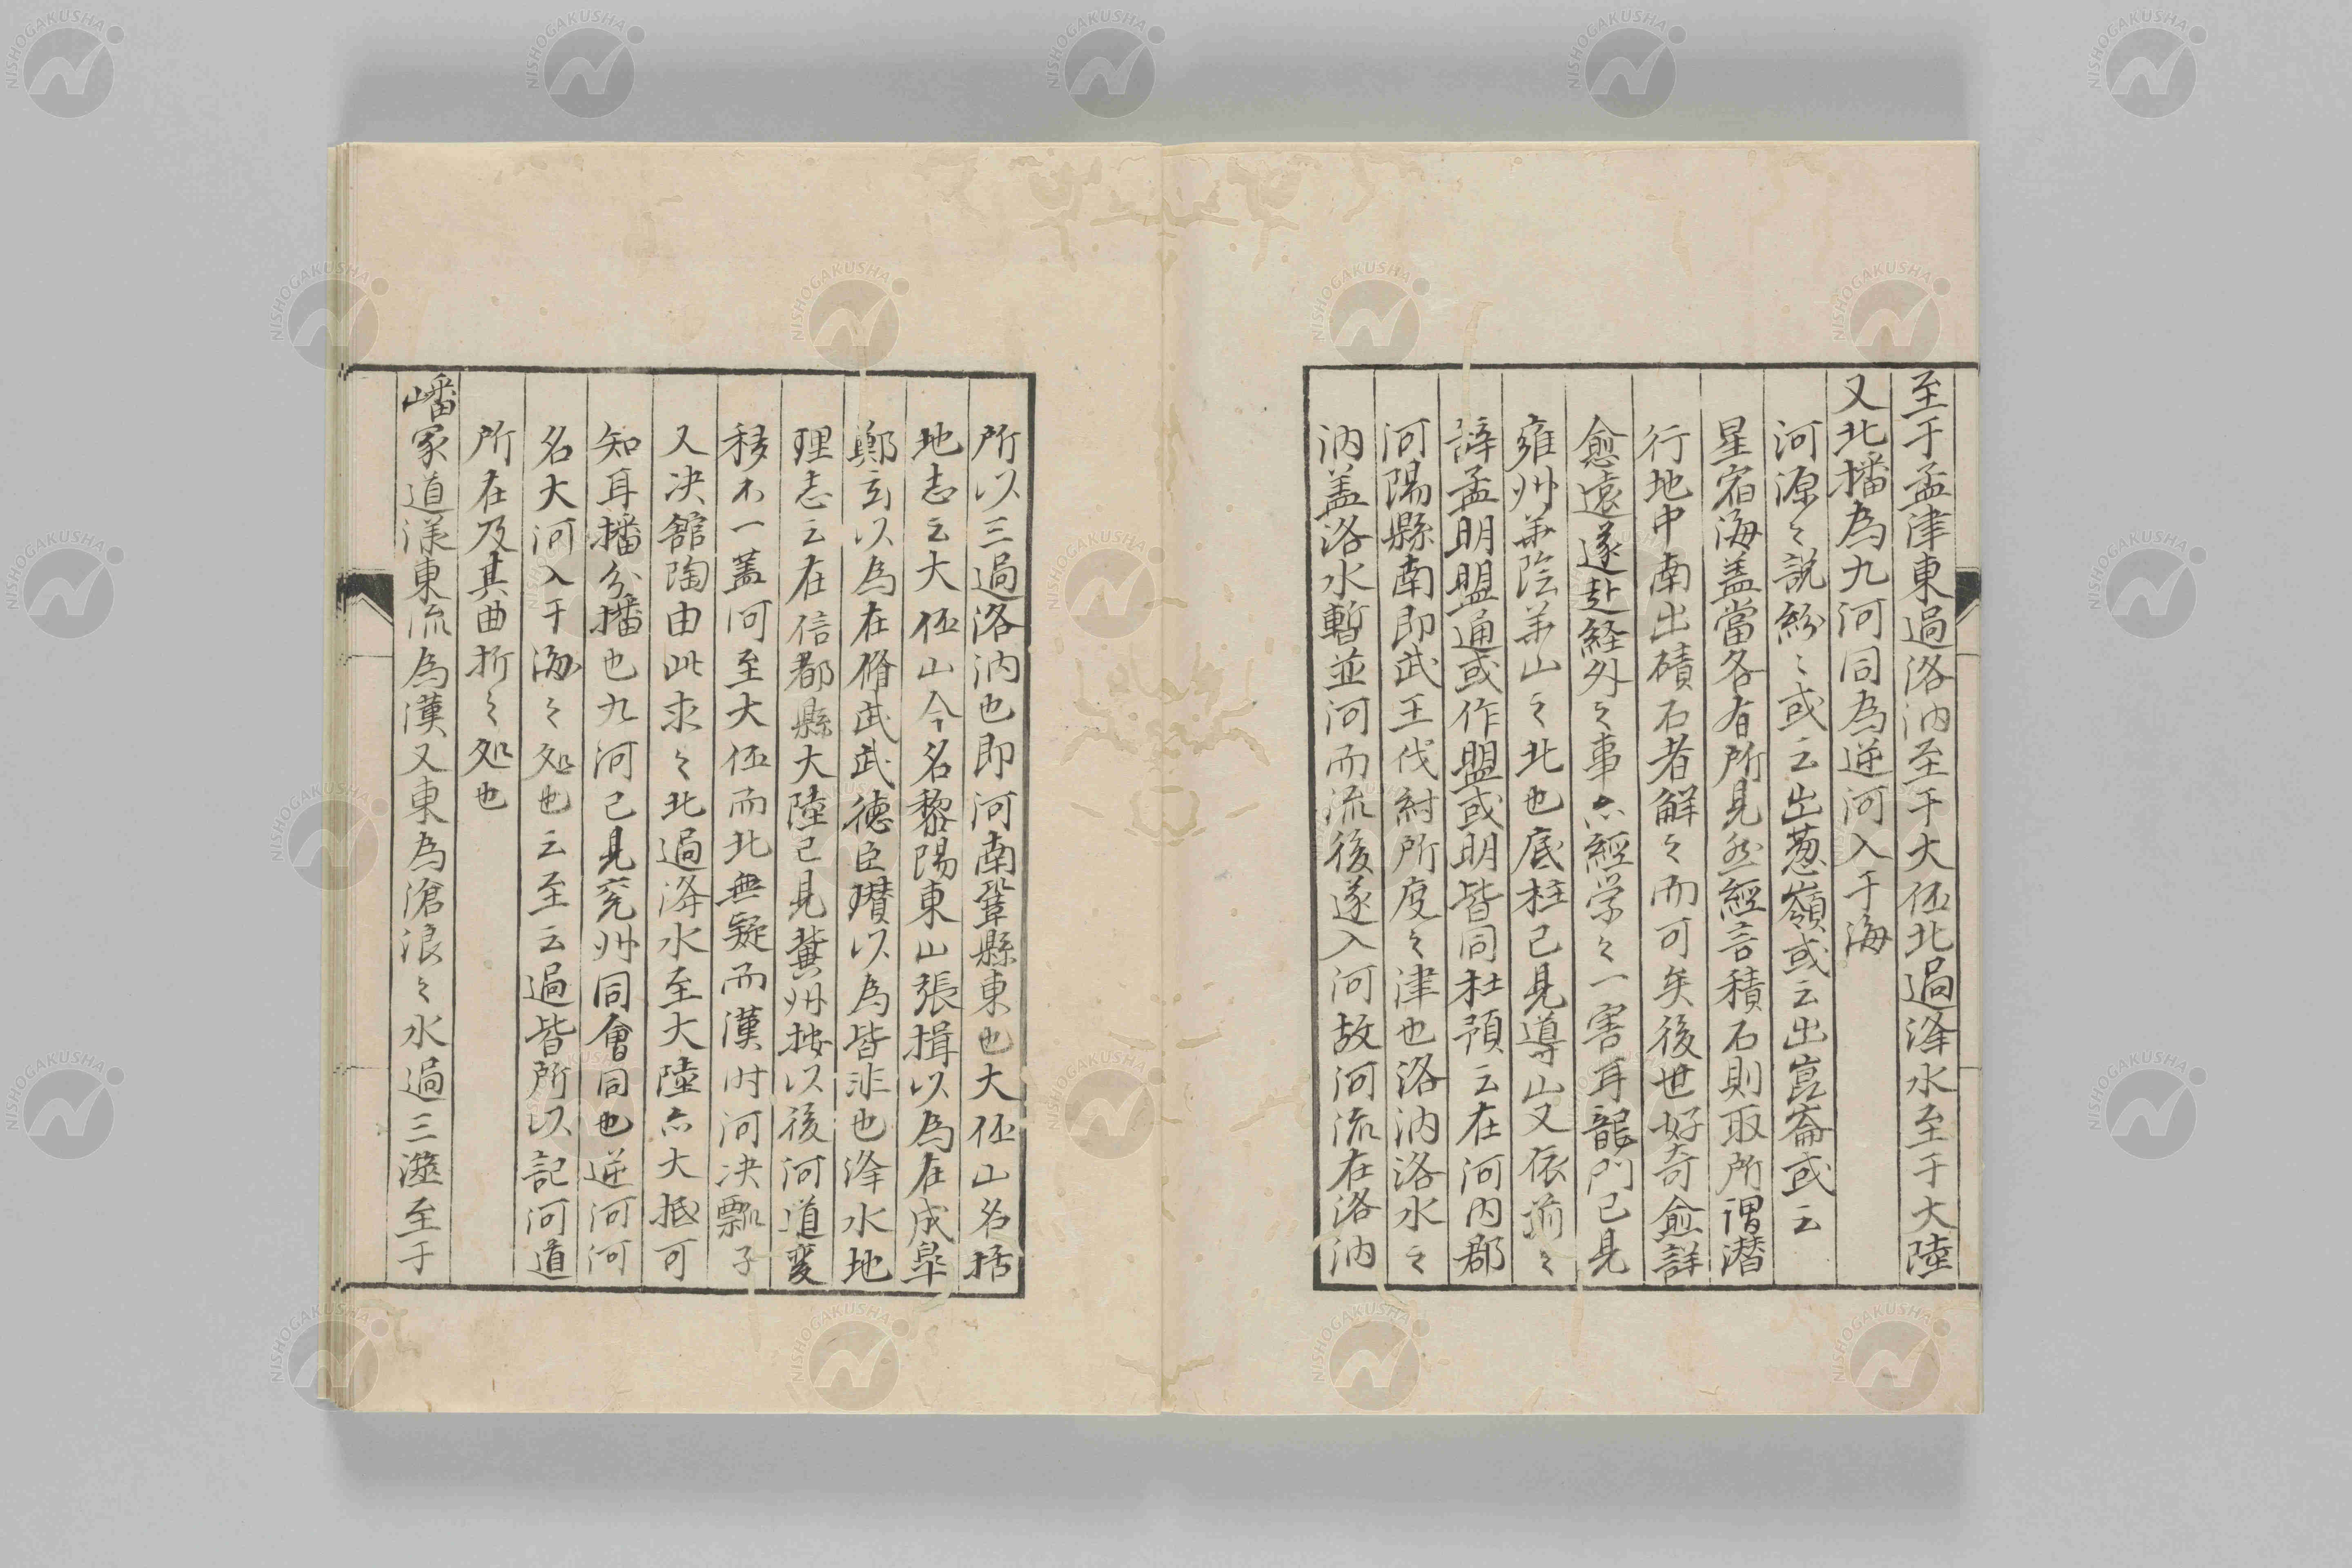 至于孟津東過洛汭至于大伾北過洚水至于大陸
又北播為九河同為逆河入于海
河源之說紛〻或云出葱嶺或云出崑崙或云
星宿海盖當各有所見然經言積石則取所謂潜
行地中南出磧石者解之而可矣後世好奇愈詳
愈遠遂赴経外之事亦經学之一害耳龍門已見
雍州華陰華山之北也底柱已見導山又依前之
辞孟明盟通或作盟或明皆同杜預云在河内郡
河陽縣南即武王伐紂所度之津也洛汭洛水之
汭盖洛水暫並河而流後遂入河故河流在洛汭
所以三過洛汭也即河南鞏縣東也大伾山名括
地志云大伾山今名黎陽東山張揖以為在成皐
鄭玄以為在脩武武德臣瓚以為皆非也洚水地
理志云在信都縣大陸已見冀州按以後河道変
移不一盖河至大伾而北無疑而漢时河决瓢子
又决舘陶由此求之北過洚水至大陸亦大抵可
知耳播分播也九河已見兖州同會同也逆河河
名大河入于海之処也云至云過皆所以記河道
所在及其曲折之処也
嶓冢道漾東流為漢又東為滄浪之水過三澨至于
NISHOGAKUSHA